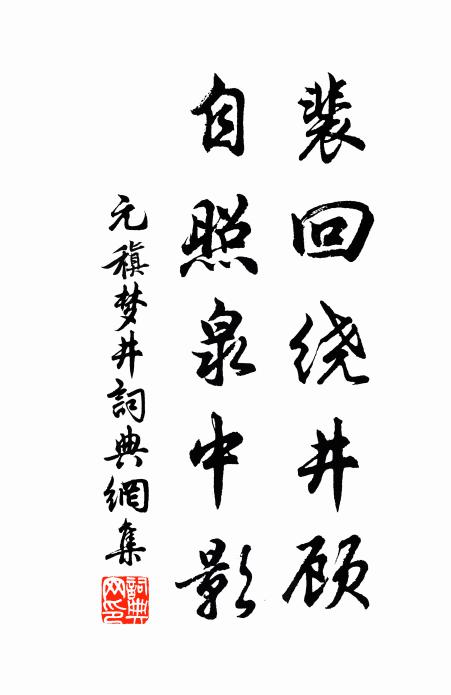 裴回绕井顾
自照泉中影
元稹梦井詞典網集
詞典网印